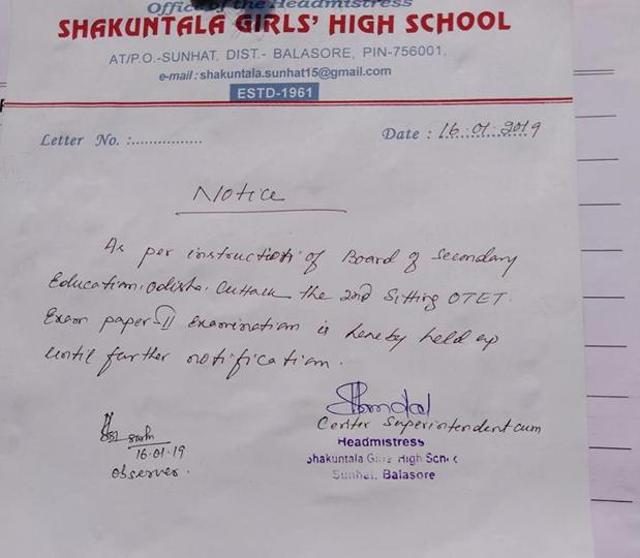 Office of the Headmistress
SHAKUNTALA GIRLS' HIGH SCHOOL
AT/P.O.-SUNHAT, DIST.- BALASORE, PIN-756001,
e-mail : shakuntala.sunhat15@gmail.com
ESTD-1961
Letter No. :................ Date : 16.01.2019
Notice
As per instruction of Board of Secondary
Education, Odisha, Cuttack the 2nd Sitting OTET
Exam paper-II examination is hereby held up
until further notification.
Center Superintendent cum
Headmistress
Shakuntala Girls High School
Sunhat, Balasore
16.01.19
Observer.